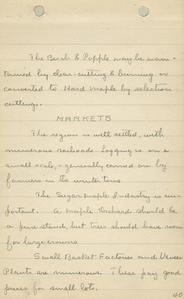 The Birch & Popple may be main-
tained by clear-cutting & burning, or
converted to Hard Maple by selection
cutting.
MARKETS
The region is well settled, with
numerous railroads. Logging is on a
small scale, & generally carried on by
farmers in the winter time.
The Sugar Maple Industry is im-
portant. A Maple Orchard should be
a pure stand, but trees should have room
for large crowns.
Small Basket Factories and Veneer
Plants are numerous. These pay good
prices for small lots.